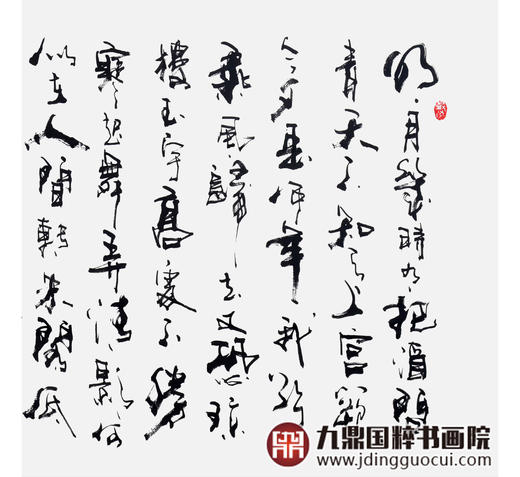 明月几时有把酒问
青天不知天上宫阙
今夕是何年我欲
乘风归去又恐琼
楼玉宇高处不胜
寒起舞弄清影何
似在人间转朱阁低
九鼎国粹书画院
www.jdingguocui.com